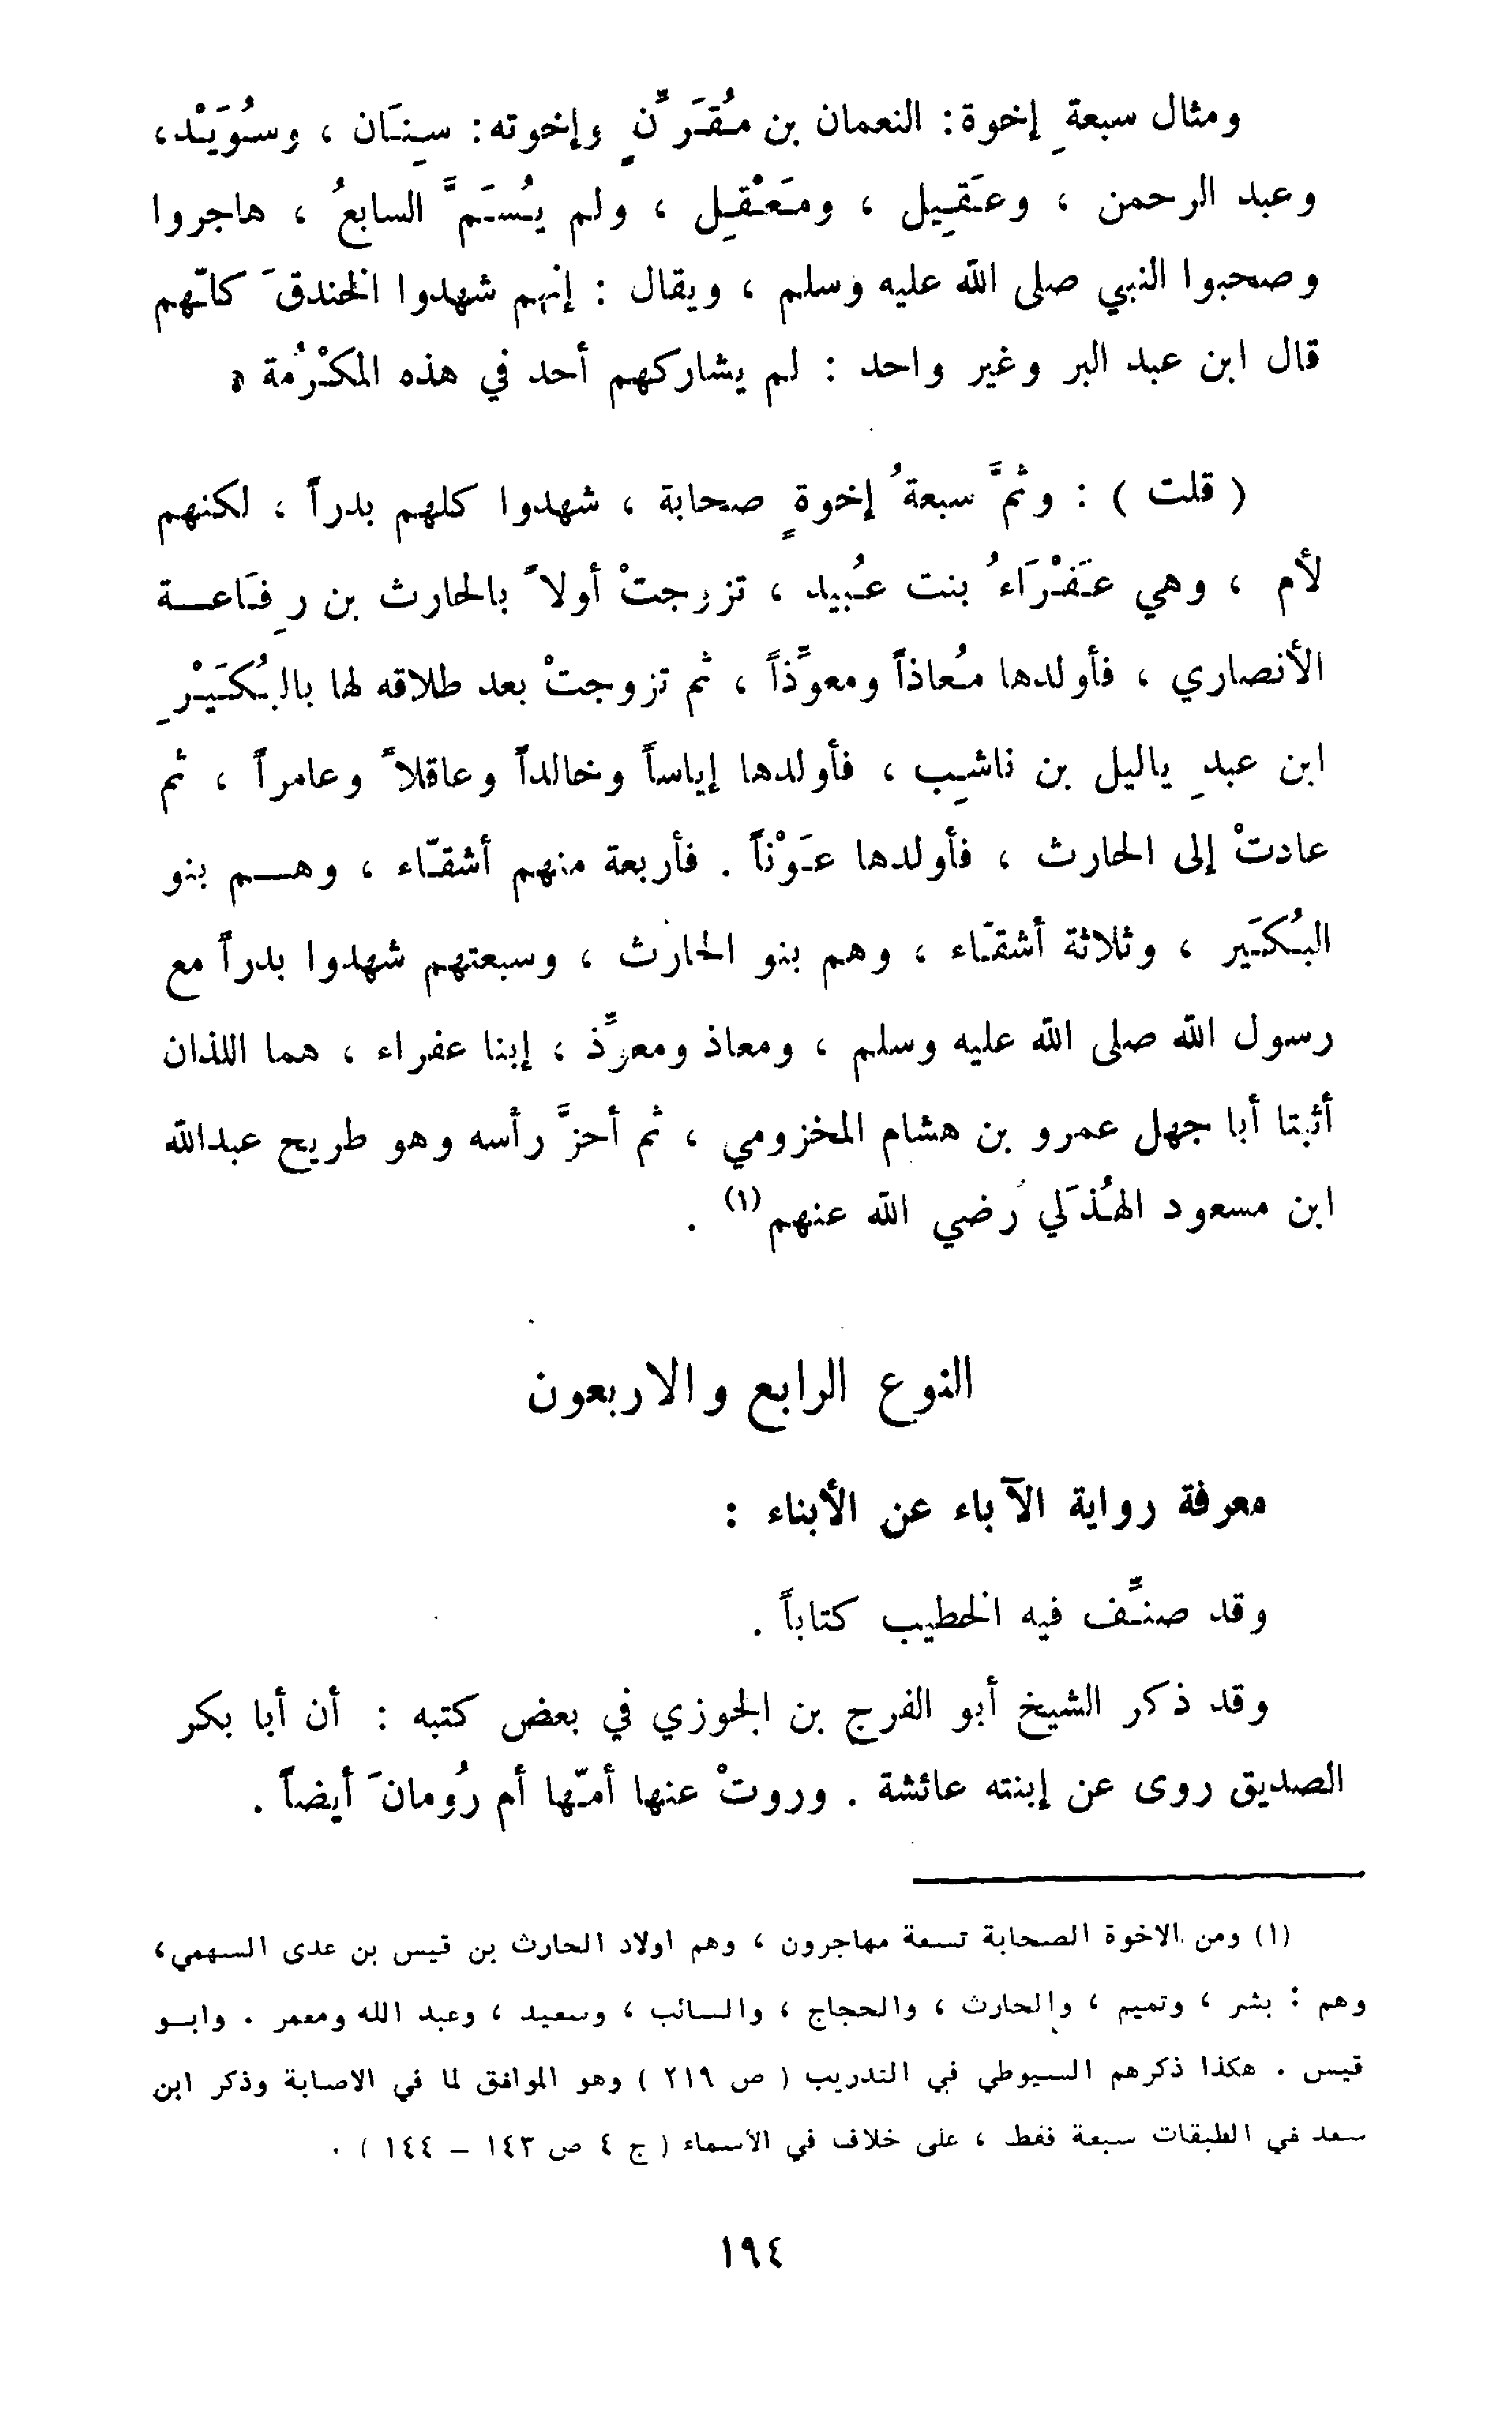 ومثال سبعةِ إخوة: النعمان بن مُقَرِّنٍ وإخوته: سِنَان ، وسُوَيْد،
وعبد الرحمن ، وعَقِيل ، ومَعْقِل ، ولم يُسَمَّ السابعُ ، هاجروا
وصحبوا النبي صلى الله عليه وسلم ، ويقال : إنهم شهدوا الخندقَ كلّهم
قال ابن عبد البر وغير واحد : لم يشاركهم أحد في هذه المكْرُمة .
( قلت ) : وثمَّ سبعةُ إخوةٍ صحابة ، شهدوا كلهم بدراً ، لكنهم
لأم ، وهي عَفْرَاءُ بنت عُبيد ، تزوجتْ أولاً بالحارث بن رِفَاعــة
الأنصاري ، فأولدها مُعاذاً ومعوِّذاً ، ثم تزوجتْ بعد طلاقه لها بالبُكَيْرِ
ابن عبدِ ياليل بن ناشِب ، فأولدها إياساً وخالداً وعاقلاً وعامراً ، ثم
عادتْ إلى الحارث ، فأولدها عَوْناً . فأربعة منهم أشقّاء ، وهــم بنو
البُكَير ، وثلاثة أشقّاء ، وهم بنو الحارث ، وسبعتهم شهدوا بدراً مع
رسول الله صلى الله عليه وسلم ، ومعاذ ومعوِّذ ، إبنا عفراء ، هما اللذان
أثبتا أبا جهل عمرو بن هشام المخزومي ، ثم أحزَّ رأسه وهو طريح عبدالله
ابن مسعود الهُذَلي رضي الله عنهم (١) .
النوع الرابع والاربعون
معرفة رواية الآباء عن الأبناء :
وقد صنَّف فيه الخطيب كتاباً .
وقد ذكر الشيخ أبو الفرج بن الجوزي في بعض كتبه : أن أبا بكر
الصديق روى عن إبنته عائشة . وروتْ عنها أمّها أم رُومانَ أيضاً .
(١) ومن الاخوة الصحابة تسعة مهاجرون ، وهم اولاد الحارث بن قيس بن عدى السهمي،
وهم : بشر ، وتميم ، والحارث ، والحجاج ، والسائب ، وسعيد ، وعبد الله ومعمر . وابــو
قيس . هكذا ذكرهم السيوطي في التدريب ( ص ٢١٩ ) وهو الموافق لما في الاصابة وذكر ابن
سعد في الطبقات سبعة فقط ، على خلاف في الأسماء ( ج ٤ ص ١٤٣ - ١٤٤ ) .
١٩٤